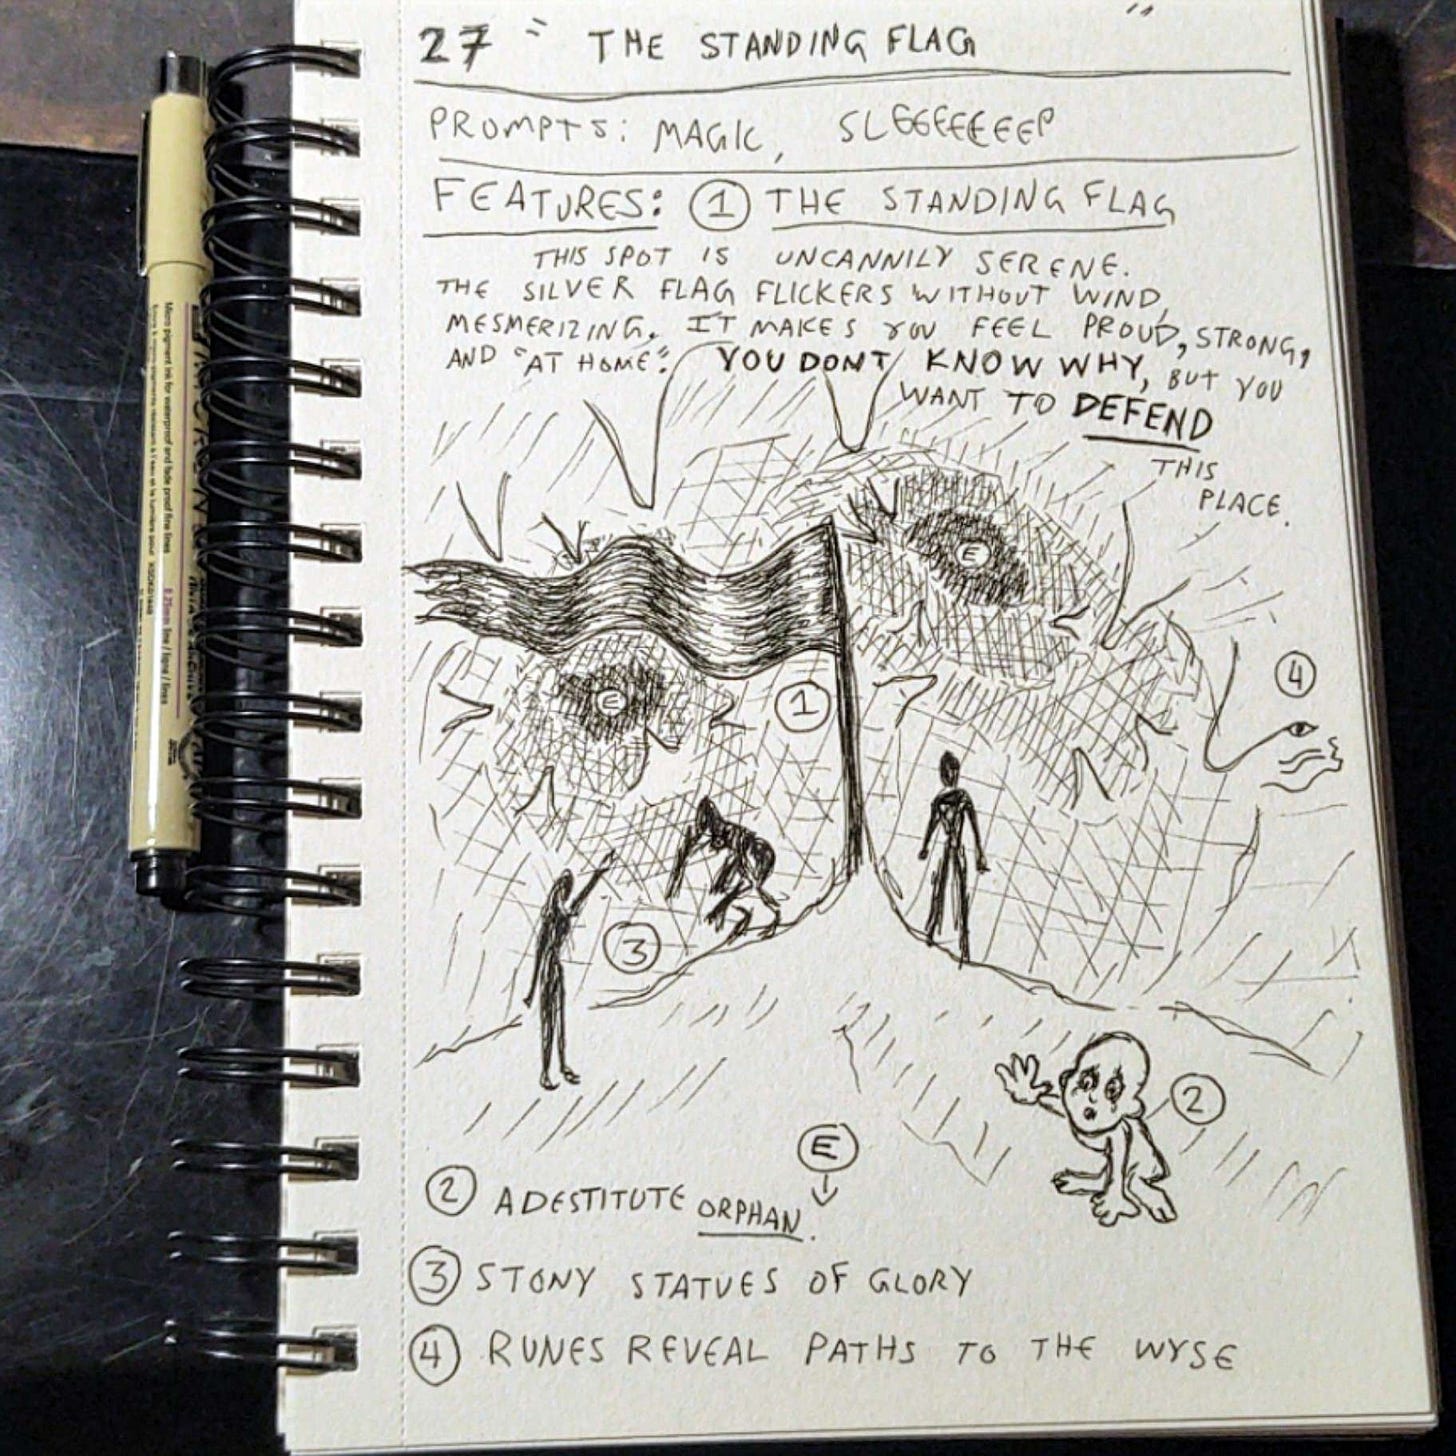 27 " THE STANDING FLAG "
PROMPTS: MAGIC, SLEEEEEEEP
FEATURES: 1 THE STANDING FLAG
THIS SPOT IS UNCANNILY SERENE.
THE SILVER FLAG FLICKERS WITHOUT WIND,
MESMERIZING. IT MAKES YOU FEEL PROUD, STRONG,
AND "AT HOME". YOU DONT KNOW WHY, BUT YOU
WANT TO DEFEND
THIS
PLACE.
E
E
1
4
3
2
E
2 A DESTITUTE ORPHAN.
3 STONY STATUES OF GLORY
4 RUNES REVEAL PATHS TO THE WYSE
Micro pigment ink for waterproof and fade proof fine lines